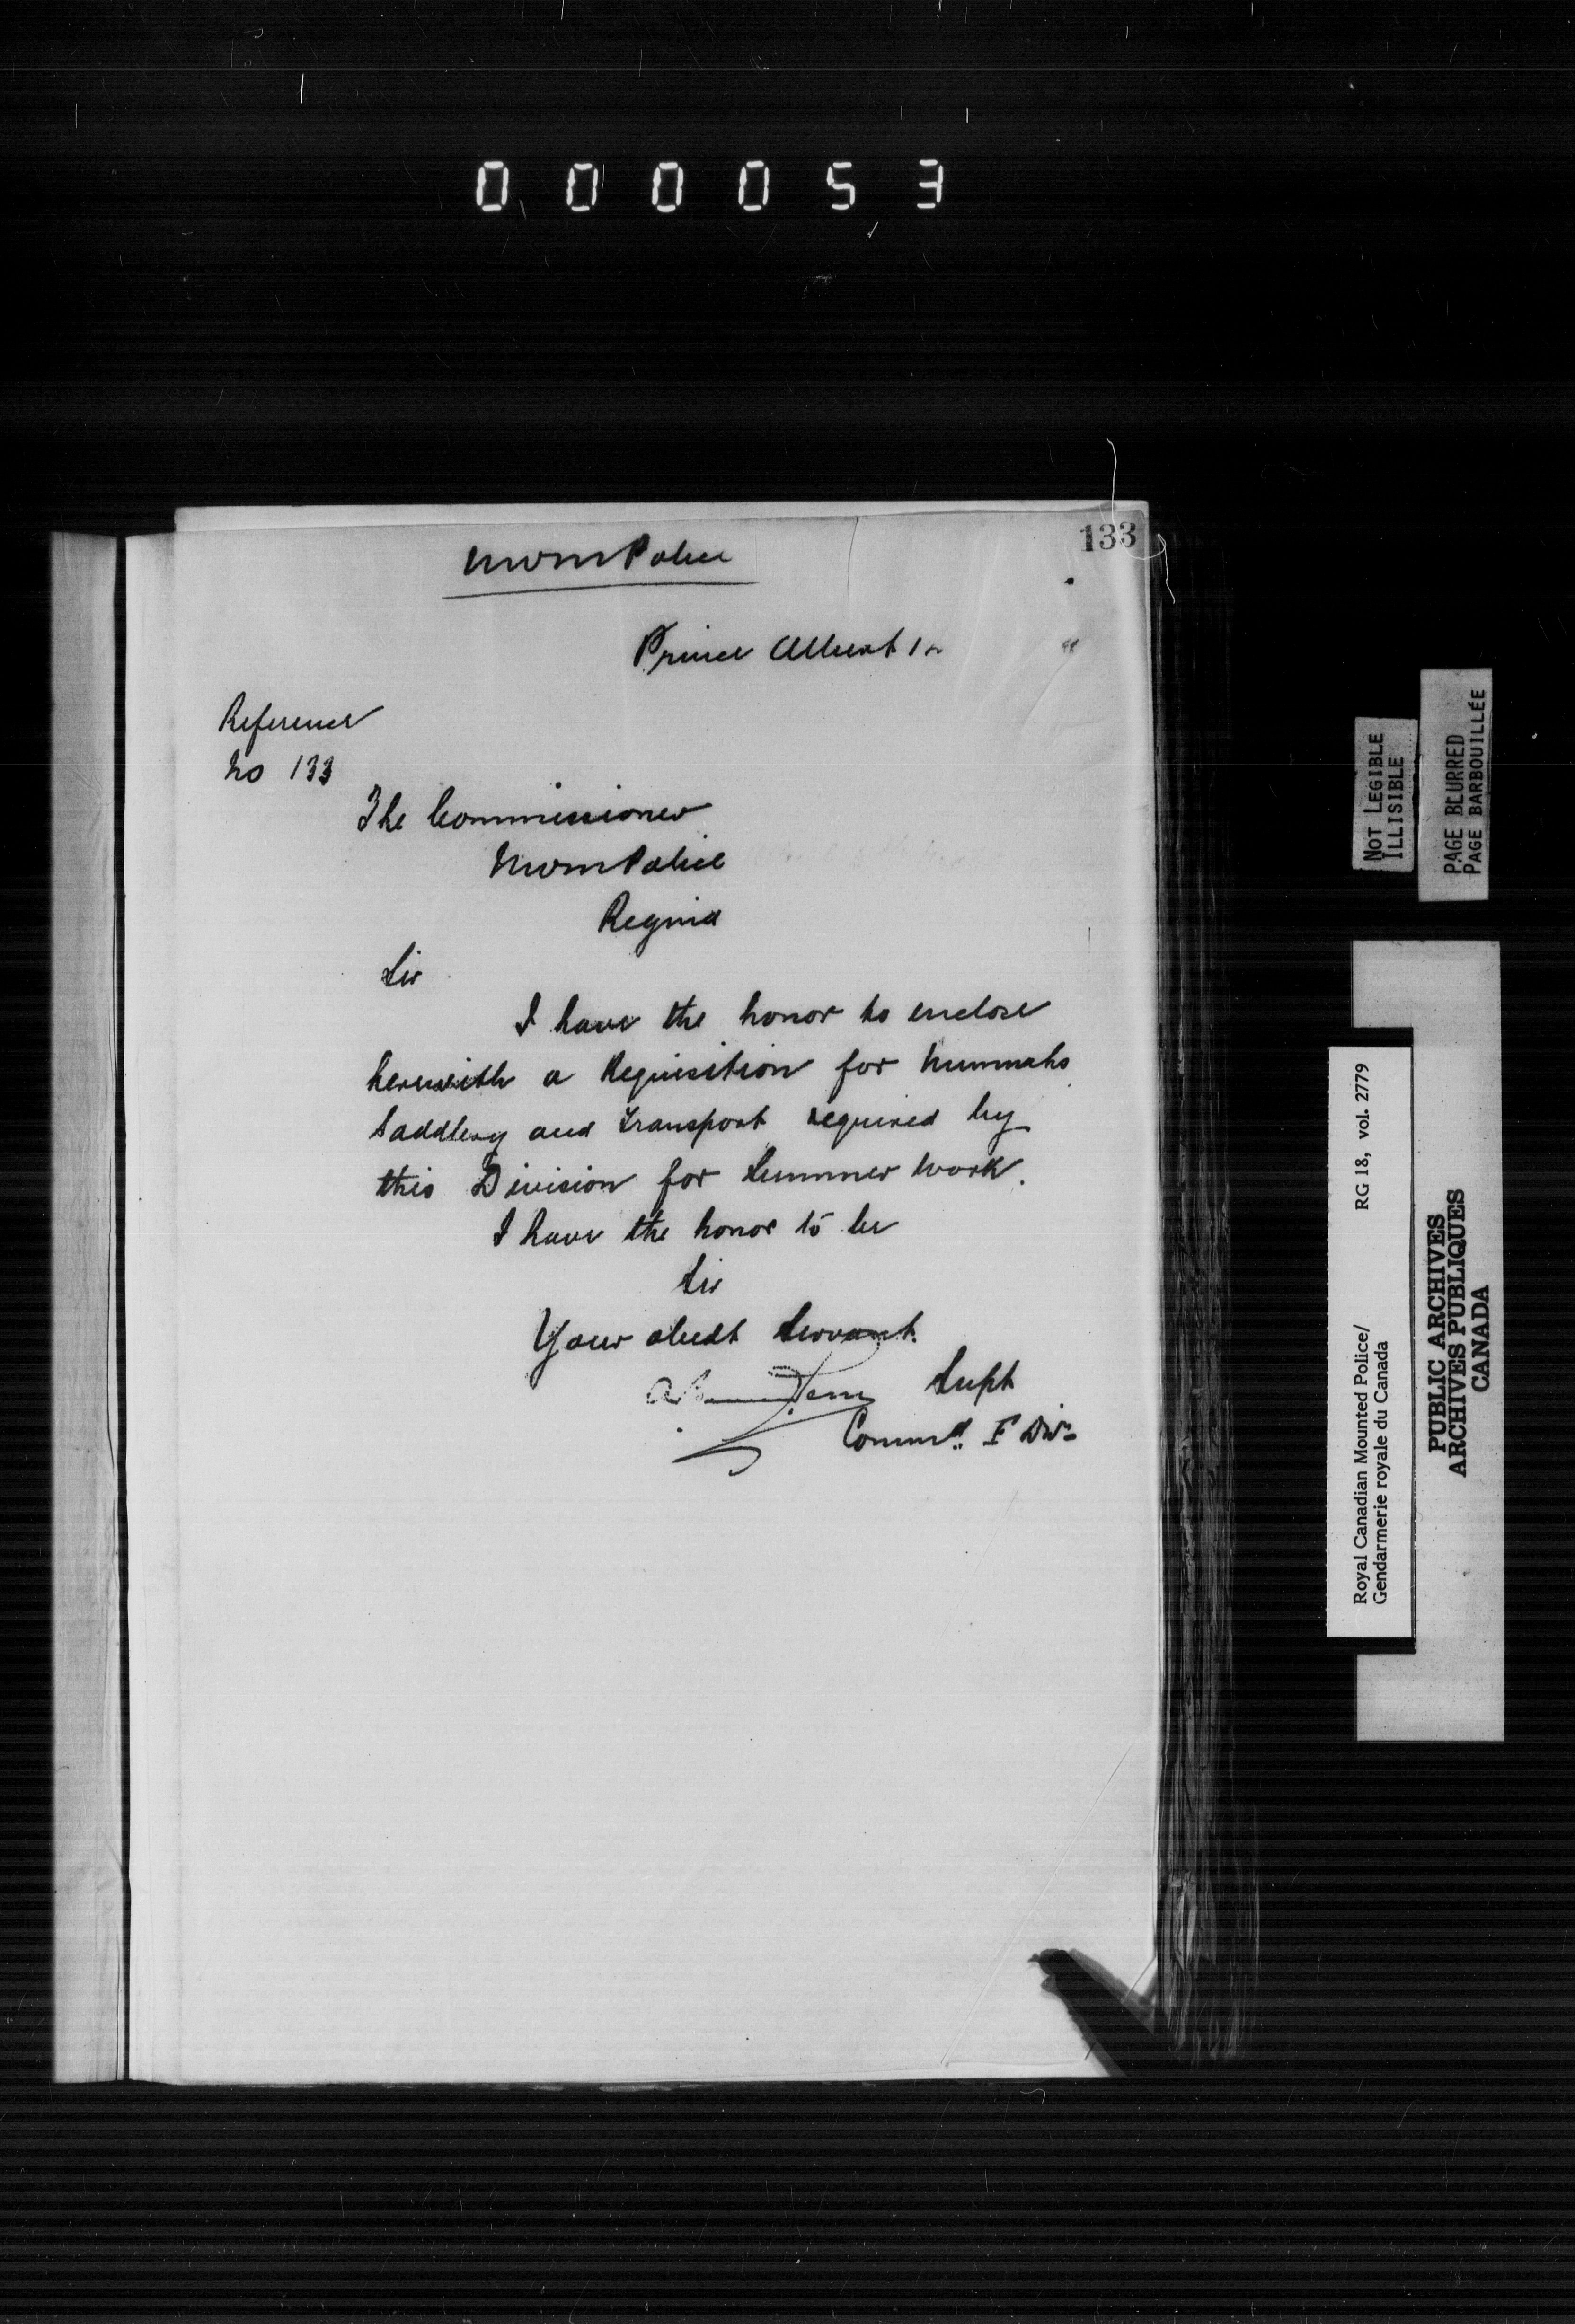 000053
133
NWM Police
Prince Albert 1
Reference
No 133
The Commissioner
NWM Police
Regina
Sir
I have the honor to enclose
herewith a Requisition for Nummahs
Saddlery and Transport required by
this Division for Summer Work.
I have the honor to be
Sir
Your obedt Servant.
Supt
Commd. F Divn
NOT LEGIBLE
ILLISIBLE
PAGE BLURRED
PAGE BARBOUILLÉE
Royal Canadian Mounted Police/ RG 18, vol. 2779
Gendarmerie royale du Canada
PUBLIC ARCHIVES
ARCHIVES PUBLIQUES
CANADA